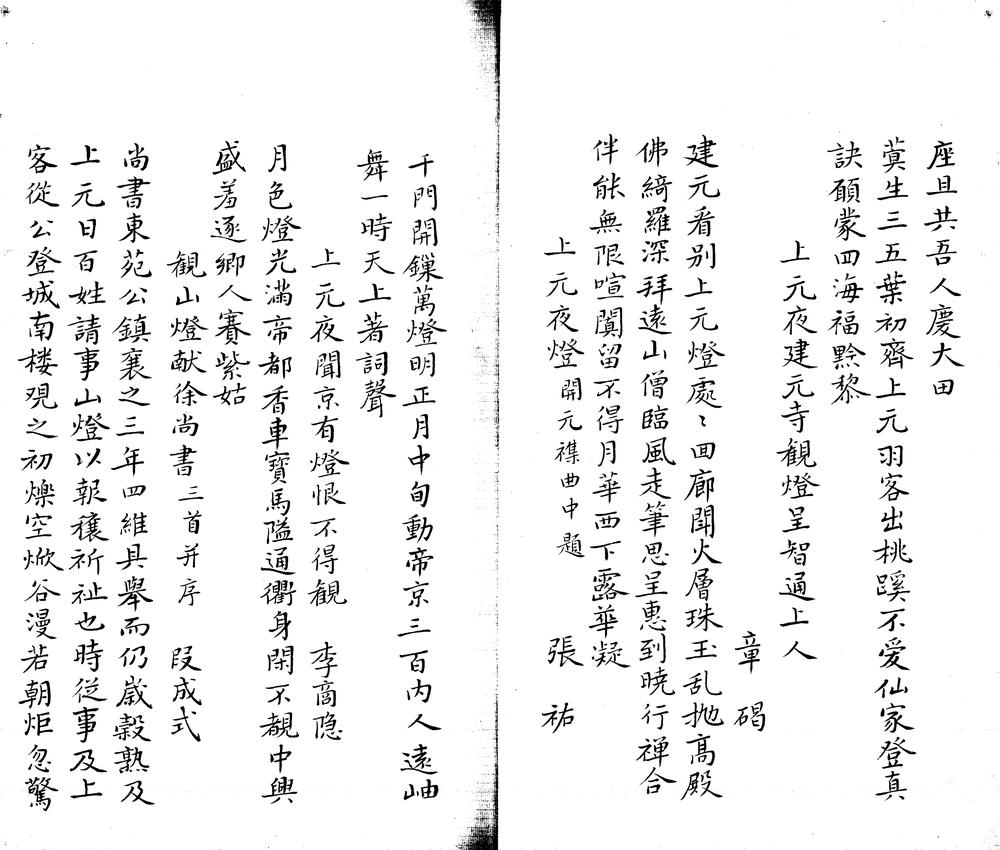 座且共吾人慶大田
蓂生三五葉初齊上元羽客出桃蹊不愛仙家登真
訣願蒙四海福黔黎
上元夜建元寺観燈呈智通上人
章碣
建元看别上元燈處〻回廊鬪火層珠玉乱抛高殿
佛綺羅深拜遠山僧臨風走筆思呈惠到暁行禅合
伴能無限喧闐留不得月華西下露華凝
上元夜燈開元襍曲中題 張祐
千門開鏁萬燈明正月中旬動帝京三百内人遠岫
舞一時天上著詞聲
上元夜聞京有燈恨不得観 李商隐
月色燈光滿帝都香車寶馬隘通衢身閑不覩中興
盛羞逐鄉人賽紫姑
観山燈献徐尚書三首并序 段成式
尚書東苑公鎮襄之三年四維具舉而仍歲榖熟及
上元日百姓請事山燈以報穰祈祉也時従事及上
客從公登城南楼覌之初爍空焮谷漫若朝炬忽驚